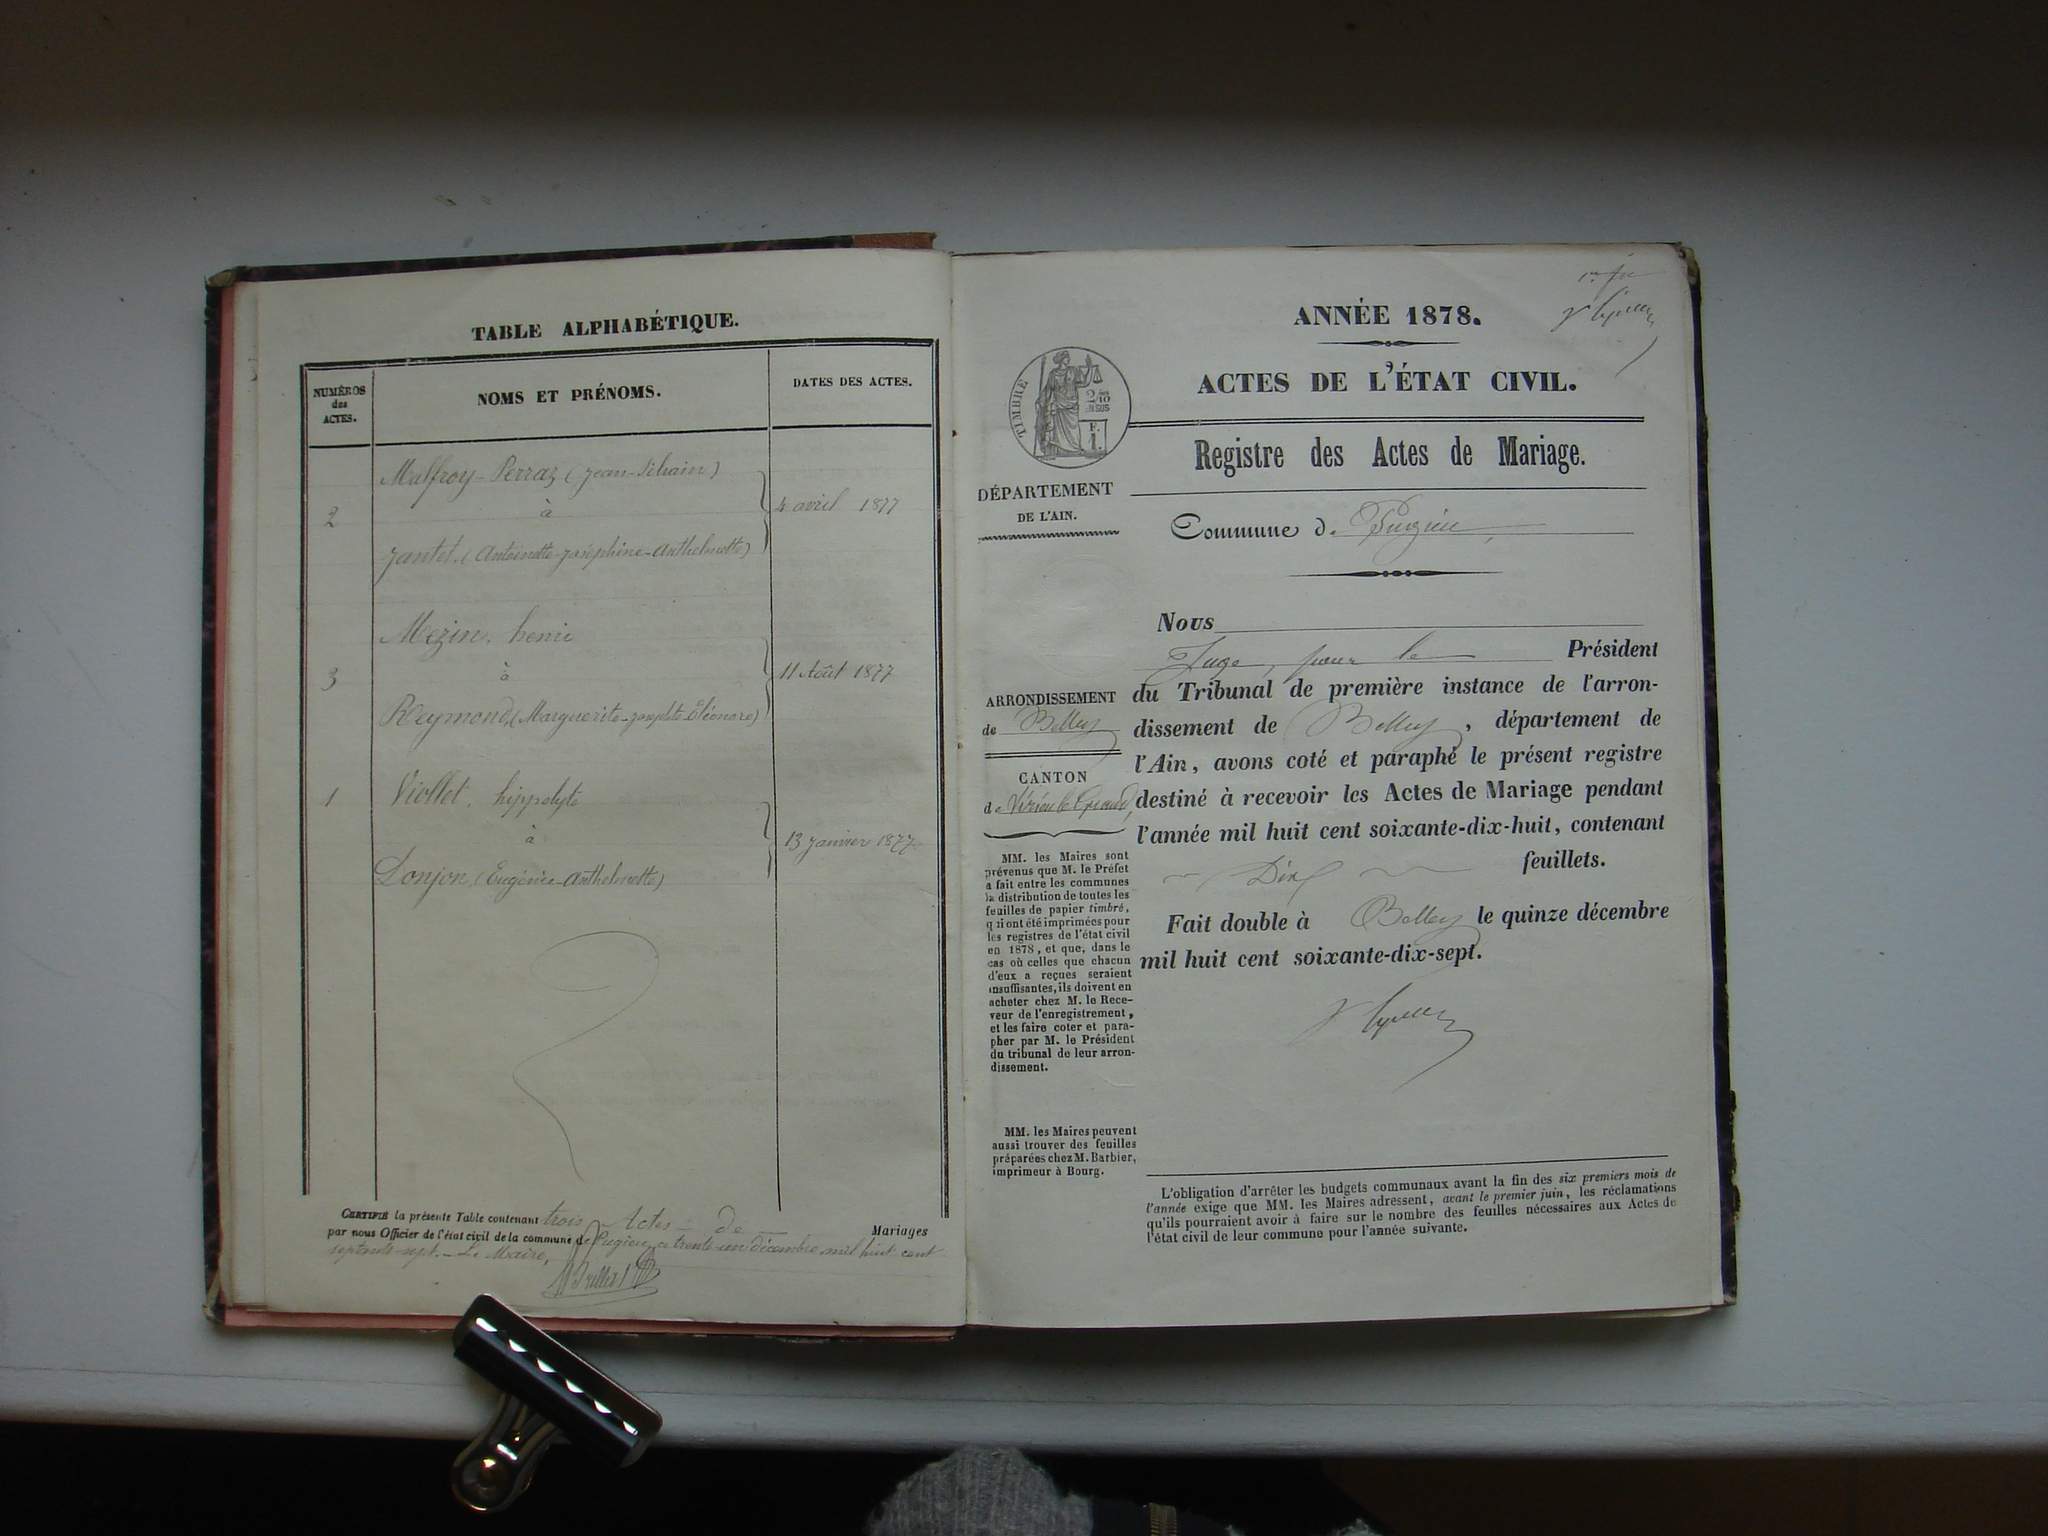 TABLE ALPHABÉTIQUE.
NUMÉROS
des
ACTES.
NOMS ET PRÉNOMS.
DATES DES ACTES.
Malfroy-Perraz (Jean-
à
2
4 avril 1877
Jantet. (Antoinette-Joséphine-Anthelmette)
Mezin. henri
à
3
11 Août 1877
Reymond, (Marguerite-Josephte-Eléonore)
Viollet. hippolyte
1
à
13 Janvier 1877
Donjon, (Eugénie-Anthelmette)
CERTIFIÉ la présente Table contenant trois Actes de Mariages
par nous Officier de l'état civil de la commune de Pugieu, ce trente-un décembre mil huit cent
septante-sept. - Le Maire,
ANNÉE 1878.
ACTES DE L'ÉTAT CIVIL.
TIMBRE
2/10
EN SUS
F.
1.
Registre des Actes de Mariage.
DÉPARTEMENT
DE L'AIN.
Commune de Pugieu
Nous
Juge, pour le Président
du Tribunal de première instance de l'arron-
dissement de Belley, département de
l'Ain, avons coté et paraphé le présent registre
destiné à recevoir les Actes de Mariage pendant
l'année mil huit cent soixante-dix-huit, contenant
Dix feuillets.
Fait double à Belley le quinze décembre
mil huit cent soixante-dix-sept.
ARRONDISSEMENT
de Belley
CANTON
de Virieu le Grand,
MM. les Maires sont
prévenus que M. le Préfet
a fait entre les communes
la distribution de toutes les
feuilles de papier timbré,
qui ont été imprimées pour
les registres de l'état civil
en 1878, et que, dans le
cas où celles que chacun
d'eux a reçues seraient
insuffisantes, ils doivent en
acheter chez M. le Rece-
veur de l'enregistrement,
et les faire coter et para-
pher par M. le Président
du tribunal de leur arron-
dissement.
MM. les Maires peuvent
aussi trouver des feuilles
préparées chez M. Barbier,
imprimeur à Bourg.
L'obligation d'arrêter les budgets communaux avant la fin des six premiers mois de
l'année exige que MM. les Maires adressent, avant le premier juin, les réclamations
qu'ils pourraient avoir à faire sur le nombre des feuilles nécessaires aux Actes de
l'état civil de leur commune pour l'année suivante.